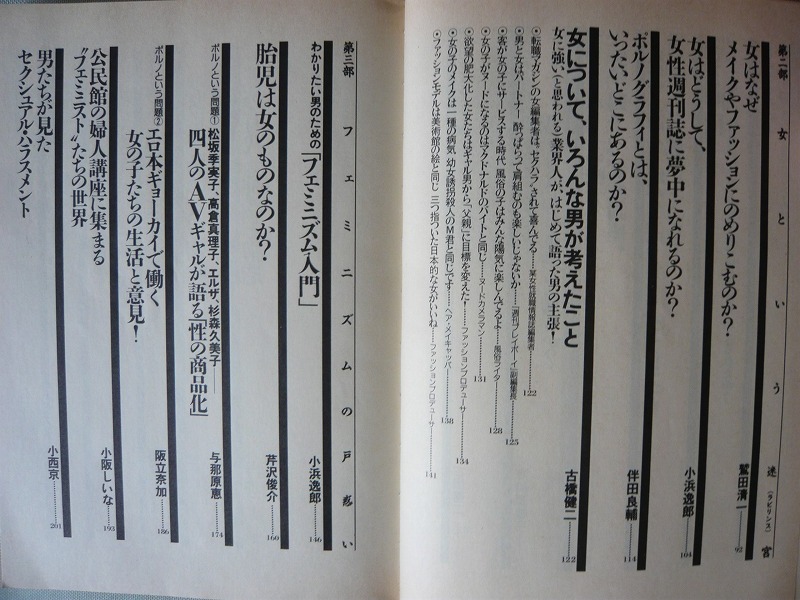 第二部 女という迷宮(ラビリンス)
女はなぜ
メイクやファッションにのめりこむのか? 鷲田清一……92
女はどうして、
女性週刊誌に夢中になれるのか? 小浜逸郎……104
ポルノグラフィとは、
いったいどこにあるのか? 伴田良輔……114
女について、いろんな男が考えたこと 古橋健二……122
女に強い、(と思われる)業界人が、はじめて語った男の主張!
●転職マガジンの女編集者は、セクハラされて喜んでる──某女性就職情報誌編集者……122
●男と女はパートナー 酔っぱらって肩組むのも楽しいじゃないか──『週刊プレイボーイ』副編集長……125
●客が女の子にサービスする時代 風俗の子はみんな陽気に楽しんでるよ──風俗ライター……128
●女の子がヌードになるのはマクドナルドのバイトと同じ──ヌードカメラマン……131
●欲望の肥大化した女たちはギャル男から「父親」に目標を変えた!──ファッションプロデューサー……134
●女の子のメイクは一種の病気 幼女誘拐殺人のM君と同じです──ヘア・メイキャッパー……138
●ファッションモデルは美術館の絵と同じ 三つ指ついた日本的な女がいいね──ファッションプロデューサー……141
第三部 フェミニズムの戸惑い
わかりたい男のための「フェミニズム入門」 小浜逸郎……146
胎児は女のものなのか? 芹沢俊介……160
ポルノという問題① 松坂季実子、高倉真理子、エルザ、杉森久美子──
四人のAVギャルが語る「性の商品化」 与那原恵……174
ポルノという問題② エロ本ギョーカイで働く
女の子たちの生活と意見! 阪立奈加……186
公民館の婦人講座に集まる
“フェミニスト”たちの世界 小阪しいな……193
男たちが見た
セクシュアル・ハラスメント 小西京……201